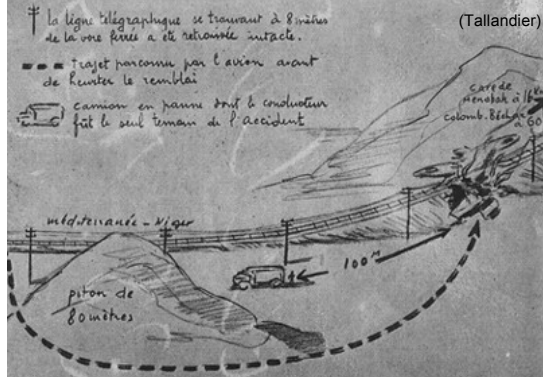 la ligne télégraphique se trouvant à 8 mètres
de la voie ferrée a été retrouvée intacte.
(Tallandier)
trajet parcouru par l'avion avant
de heurter le remblai
camion en panne dont le conducteur
fût le seul temoin de l'accident
gare de
menabah à
colomb. Béchar
à 60
méditerranée - Niger
100 m
piton de
80 mètres